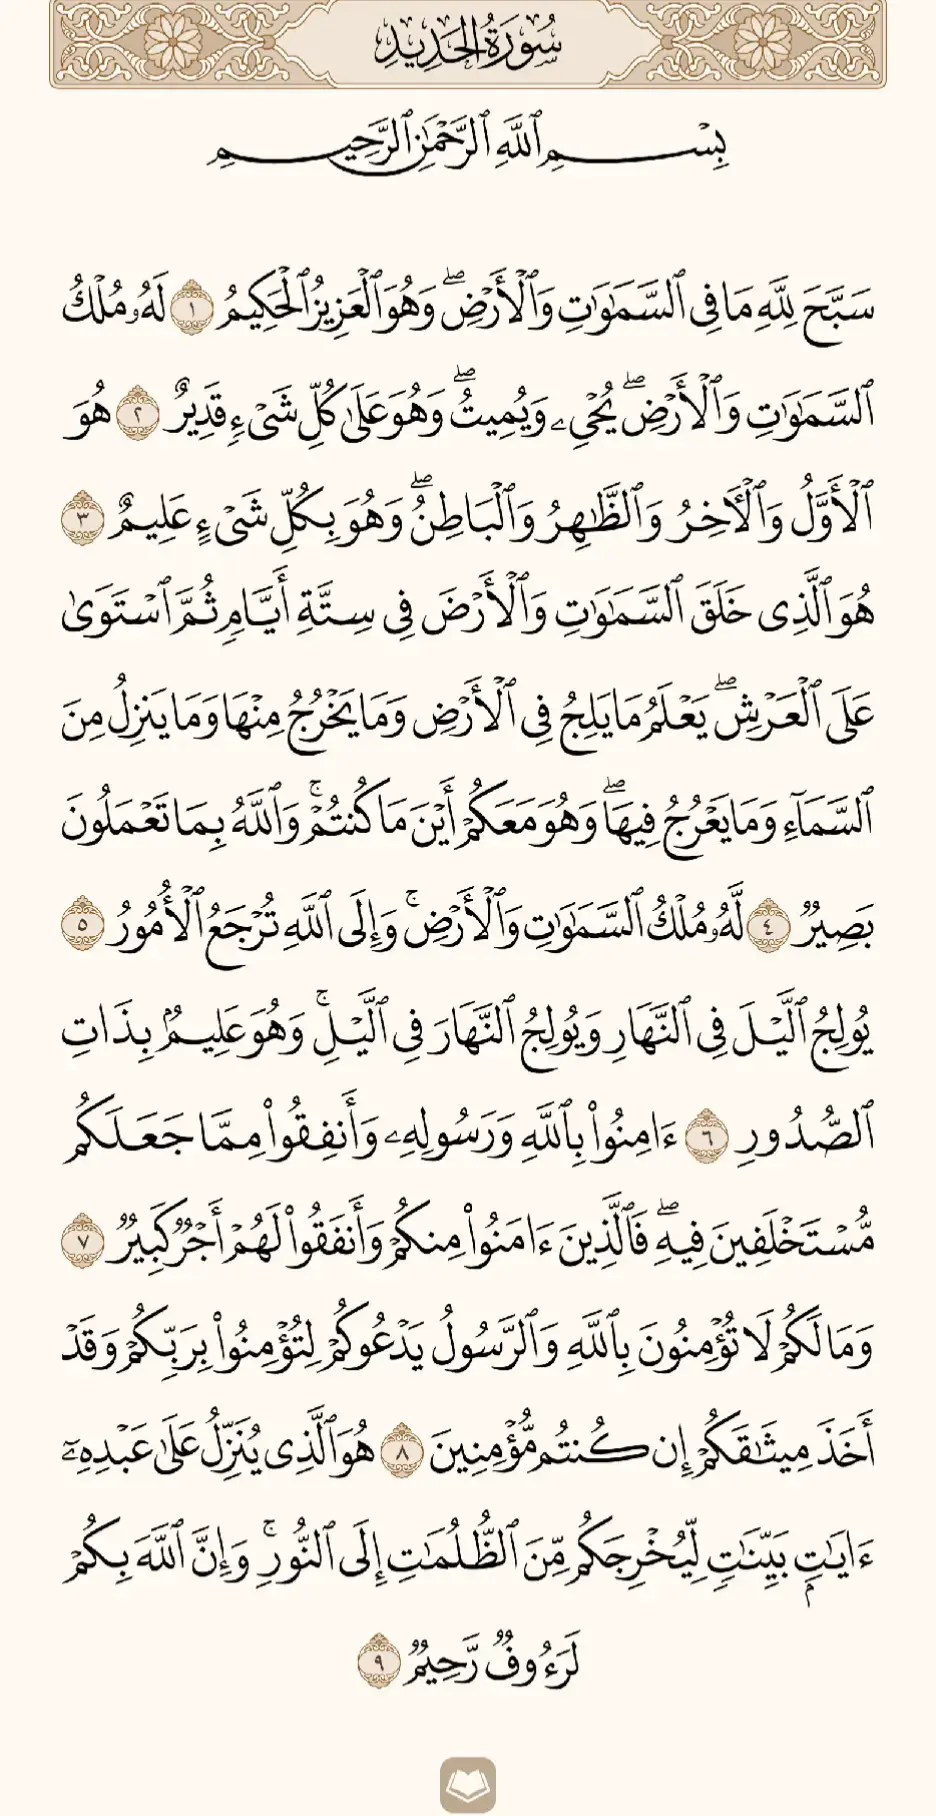 سُورَةُ الحَدِيدِ
بِسْمِ ٱللَّهِ ٱلرَّحْمَٰنِ ٱلرَّحِيمِ
سَبَّحَ لِلَّهِ مَا فِى ٱلسَّمَٰوَٰتِ وَٱلْأَرْضِۖ وَهُوَ ٱلْعَزِيزُ ٱلْحَكِيمُ ١ لَهُۥ مُلْكُ
ٱلسَّمَٰوَٰتِ وَٱلْأَرْضِۖ يُحْىِۦ وَيُمِيتُۖ وَهُوَ عَلَىٰ كُلِّ شَىْءٍ قَدِيرٌ ٢ هُوَ
ٱلْأَوَّلُ وَٱلْءَاخِرُ وَٱلظَّٰهِرُ وَٱلْبَاطِنُۖ وَهُوَ بِكُلِّ شَىْءٍ عَلِيمٌ ٣
هُوَ ٱلَّذِى خَلَقَ ٱلسَّمَٰوَٰتِ وَٱلْأَرْضَ فِى سِتَّةِ أَيَّامٍ ثُمَّ ٱسْتَوَىٰ
عَلَى ٱلْعَرْشِۖ يَعْلَمُ مَا يَلِجُ فِى ٱلْأَرْضِ وَمَا يَخْرُجُ مِنْهَا وَمَا يَنزِلُ مِنَ
ٱلسَّمَآءِ وَمَا يَعْرُجُ فِيهَاۖ وَهُوَ مَعَكُمْ أَيْنَ مَا كُنتُمْۚ وَٱللَّهُ بِمَا تَعْمَلُونَ
بَصِيرٌ ٤ لَّهُۥ مُلْكُ ٱلسَّمَٰوَٰتِ وَٱلْأَرْضِۚ وَإِلَى ٱللَّهِ تُرْجَعُ ٱلْأُمُورُ ٥
يُولِجُ ٱلَّيْلَ فِى ٱلنَّهَارِ وَيُولِجُ ٱلنَّهَارَ فِى ٱلَّيْلِۚ وَهُوَ عَلِيمٌۢ بِذَاتِ
ٱلصُّدُورِ ٦ ءَامِنُوا۟ بِٱللَّهِ وَرَسُولِهِۦ وَأَنفِقُوا۟ مِمَّا جَعَلَكُم
مُّسْتَخْلَفِينَ فِيهِۖ فَٱلَّذِينَ ءَامَنُوا۟ مِنكُمْ وَأَنفَقُوا۟ لَهُمْ أَجْرٌ كَبِيرٌ ٧
وَمَا لَكُمْ لَا تُؤْمِنُونَ بِٱللَّهِ وَٱلرَّسُولُ يَدْعُوكُمْ لِتُؤْمِنُوا۟ بِرَبِّكُمْ وَقَدْ
أَخَذَ مِيثَٰقَكُمْ إِن كُنتُم مُّؤْمِنِينَ ٨ هُوَ ٱلَّذِى يُنَزِّلُ عَلَىٰ عَبْدِهِۦٓ
ءَايَٰتٍۭ بَيِّنَٰتٍ لِّيُخْرِجَكُم مِّنَ ٱلظُّلُمَٰتِ إِلَى ٱلنُّورِۚ وَإِنَّ ٱللَّهَ بِكُمْ
لَرَءُوفٌ رَّحِيمٌ ٩